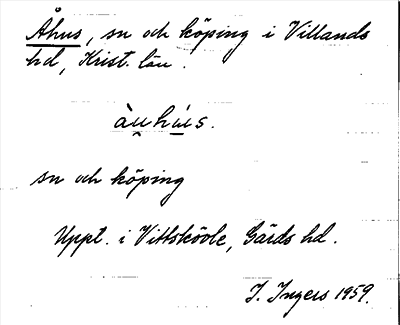 Åhus, sn och köping i Villands
hd, Krist. län.
àu̯hú̱s.
sn och köping
Uppt. i Vittskövle, Gärds hd.
J. Ingers 1959.